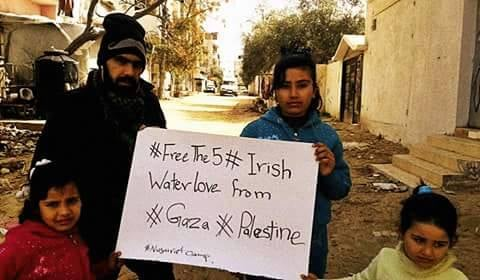 #FreeThe5# Irish
Water love from
#Gaza # Palestine
#Nusariet Camp.